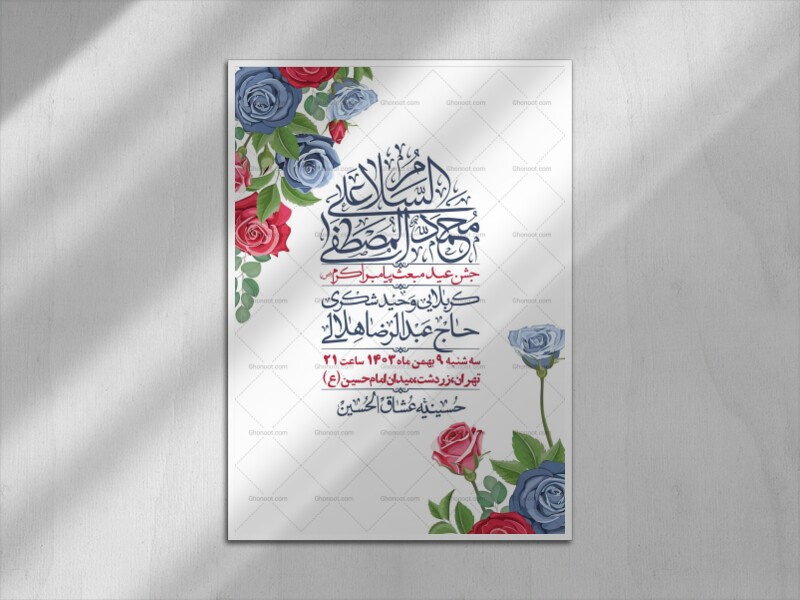 السلام علی
محمد المصطفی
جشن عید مبعث پیامبر اکرم(ص)
کربلایی وحید شکری
حاج عبدالرضا هلالی
سه شنبه ۹ بهمن ماه ۱۴۰۳ ساعت ۲۱
تهران، زردشت، میدان امام حسین (ع)
حسینیه عشاق الحسین
Ghonoot.com